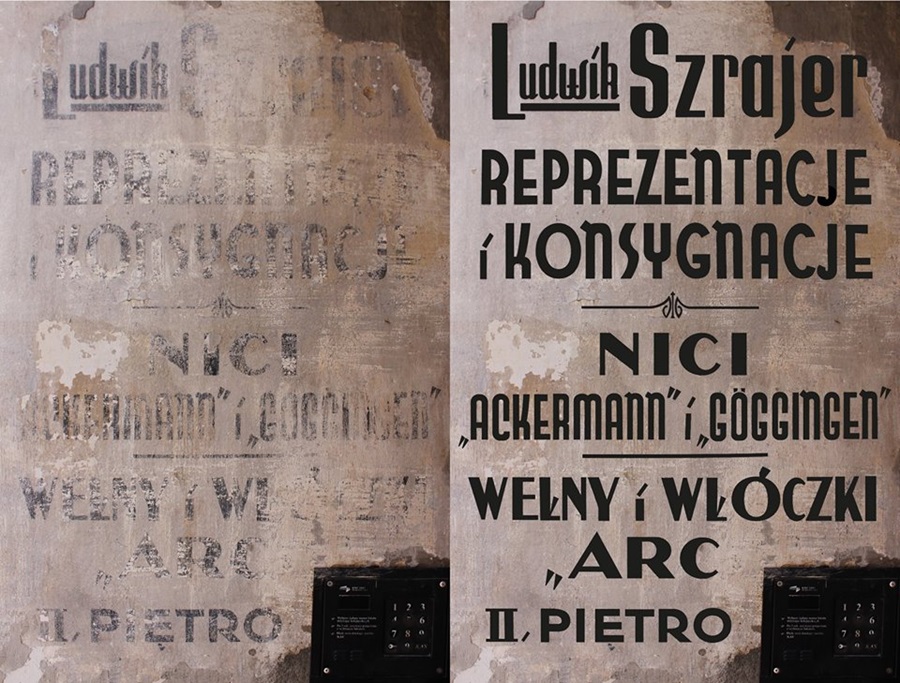 Ludwik Szrajer
REPREZENTACJE
i KONSYGNACJE
NICI
„ACKERMANN" i „GÖGGINGEN"
WEŁNY i WŁÓCZKI
„ARC
II, PIĘTRO
1 2 3
4 6
7 8 9
0
Ludwik Szrajer
REPREZENTACJE
i KONSYGNACJE
NICI
„ACKERMANN" i „GÖGGINGEN"
WEŁNY i WŁÓCZKI
„ARC
II, PIETRO
1 2 3
4 6
7 8 9
0